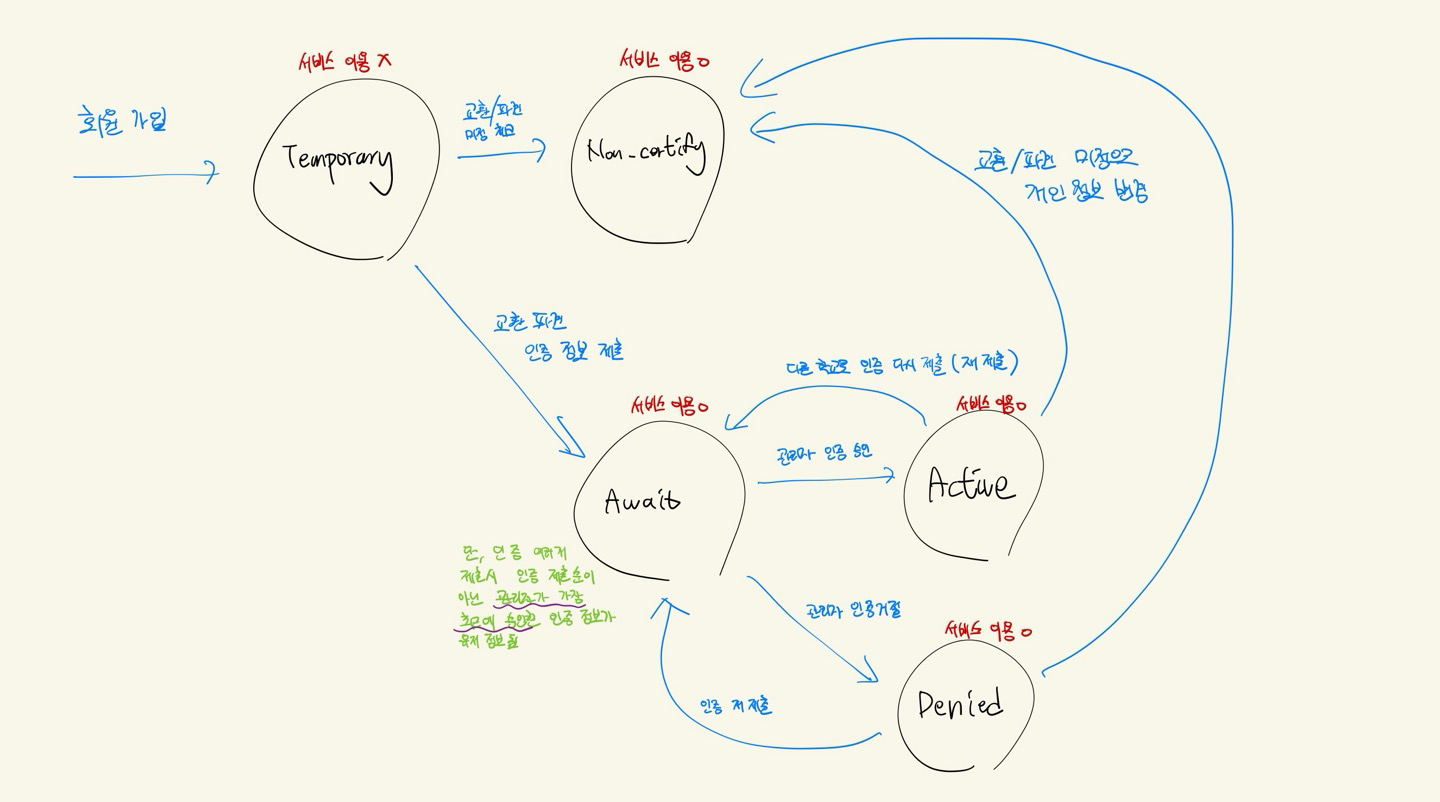 회원 가입
서비스 이용 X
Temporary
교환/파견
미정 체크
서비스 이용 O
Non-certify
교환/파견 미정으로
개인 정보 변경
교환 파견
인증 정보 제출
다른 학교로 인증 다시 제출 (재 제출)
서비스 이용 O
Await
관리자 인증 승인
서비스 이용 O
Active
또, 인증 여러개
제출시 인증 제출순이
아닌 관리자가 가장
최근에 승인한 인증 정보가
유저 정보됨
관리자 인증거절
서비스 이용 O
Denied
인증 재 제출